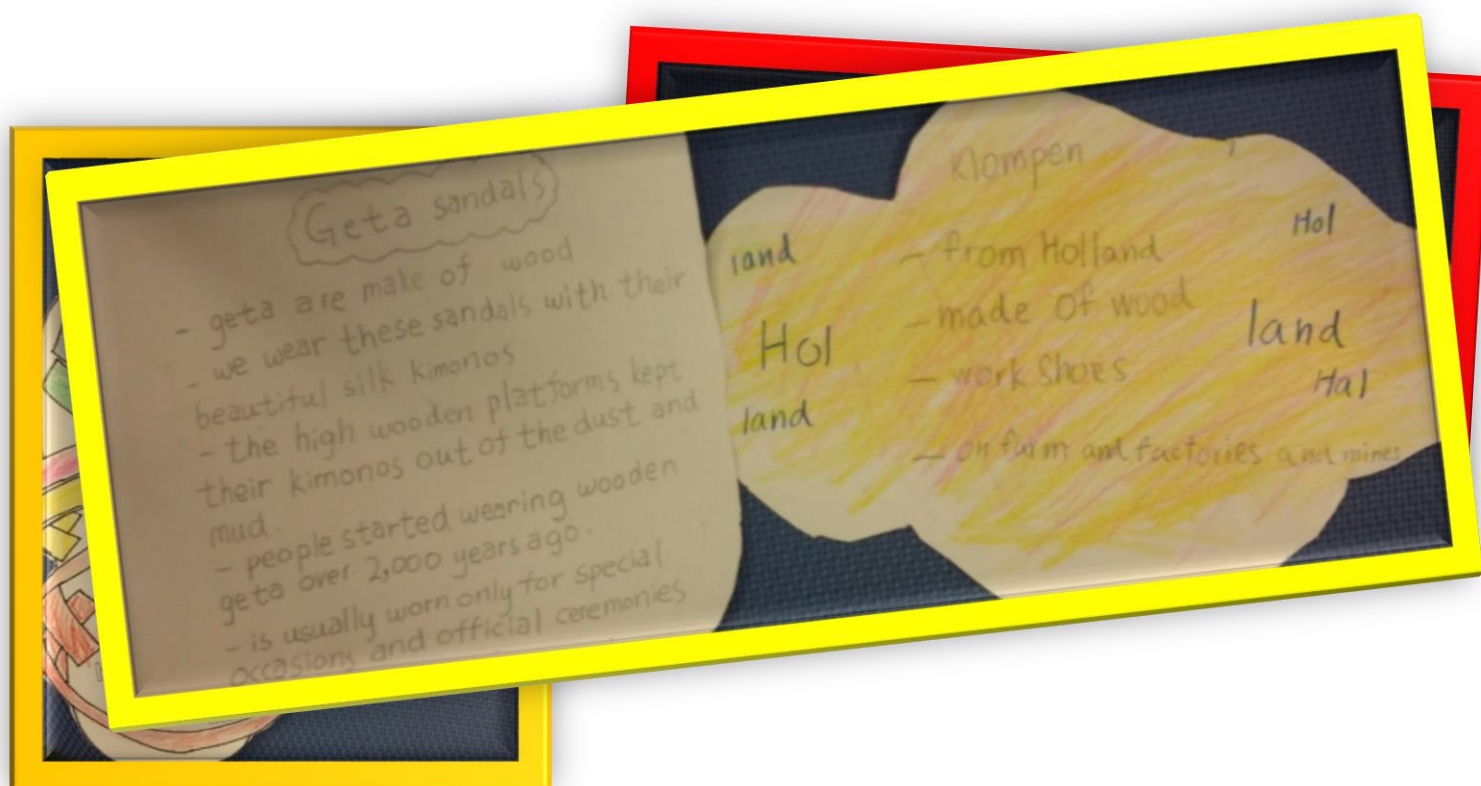 Geta sandals
- geta are make of wood
- we wear these sandals with their
beautiful silk kimonos
- the high wooden platforms kept
their kimonos out of the dust and
mud.
- people started wearing wooden
geta over 2,000 years ago.
- is usually worn only for special
occasions and official ceremonies
land
Hol
land
Klompen
- from Holland
- made of wood
- work shoes
- on farm and factories and mines
Hol
land
Hal